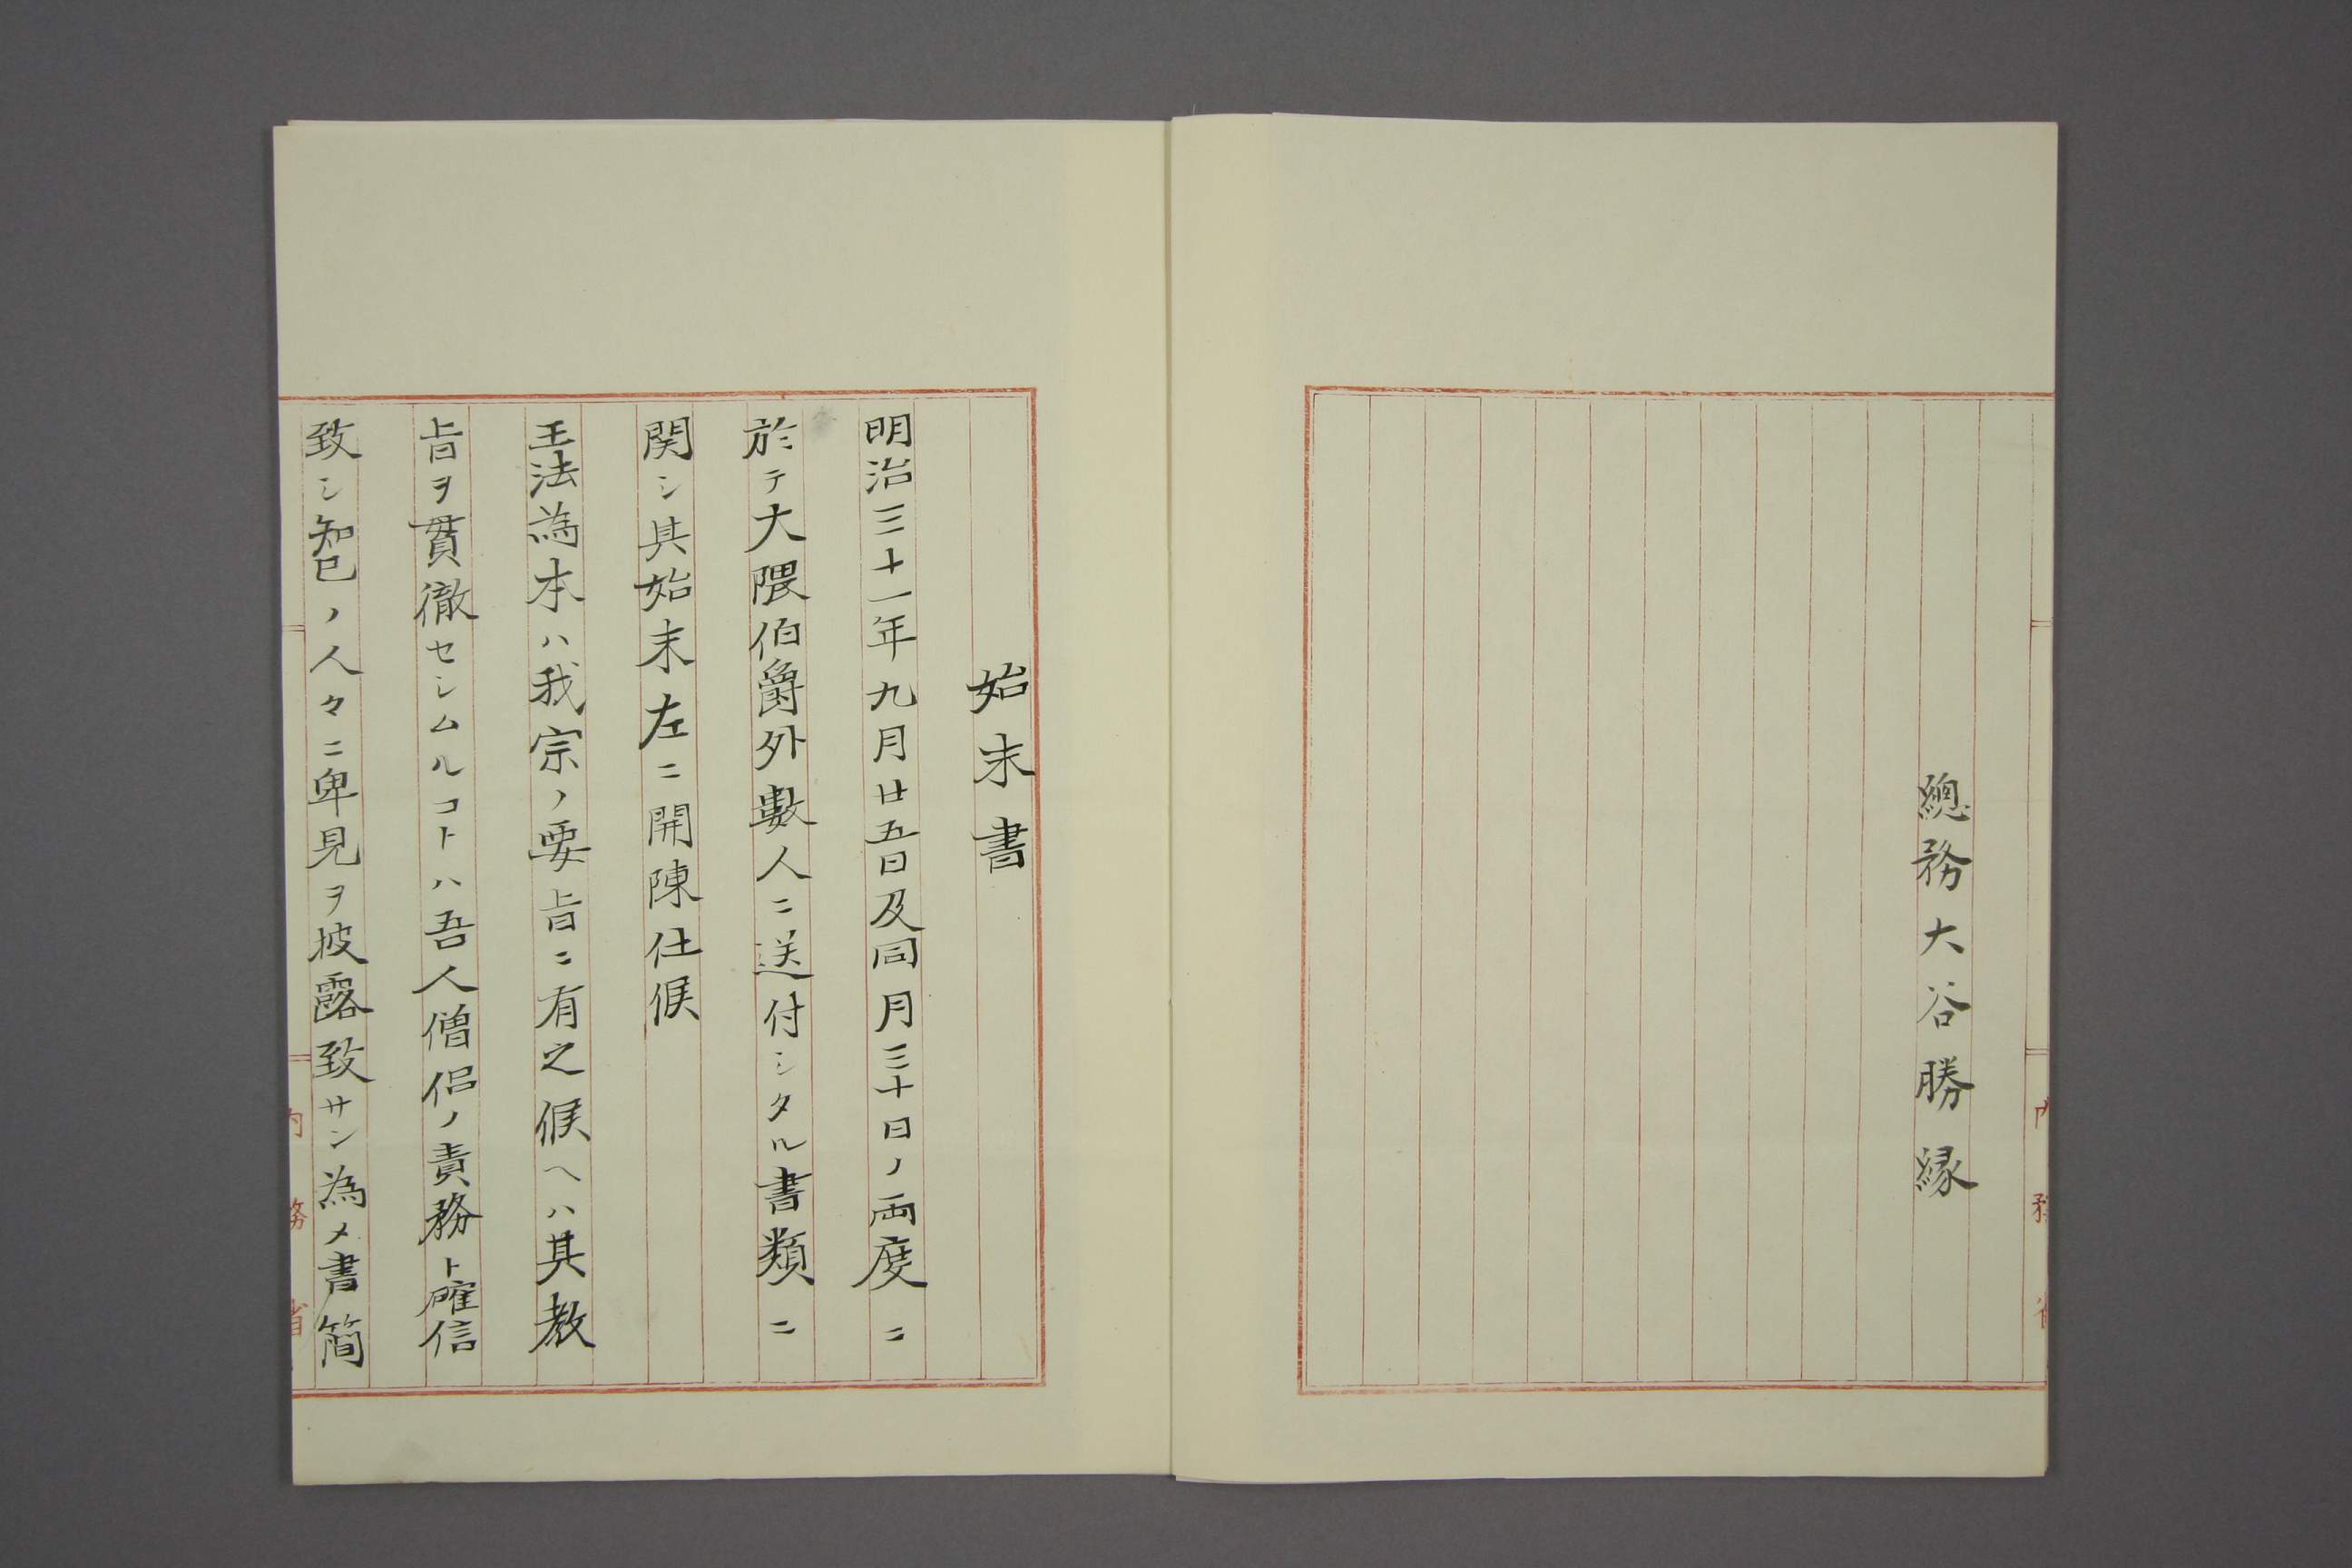 總務大谷勝縁
始末書
明治三十一年九月廿五日及同月三十日ノ両度ニ
於テ大隈伯爵外數人ニ送付シタル書類ニ
関シ其始末左ニ開陳仕候
王法為本ハ我宗ノ要旨ニ有之候ヘハ其教
旨ヲ貫徹セシムルコトハ吾人僧侶ノ責務ト確信
致シ知已ノ人々ニ卑見ヲ披露致サン為メ書簡
内務省